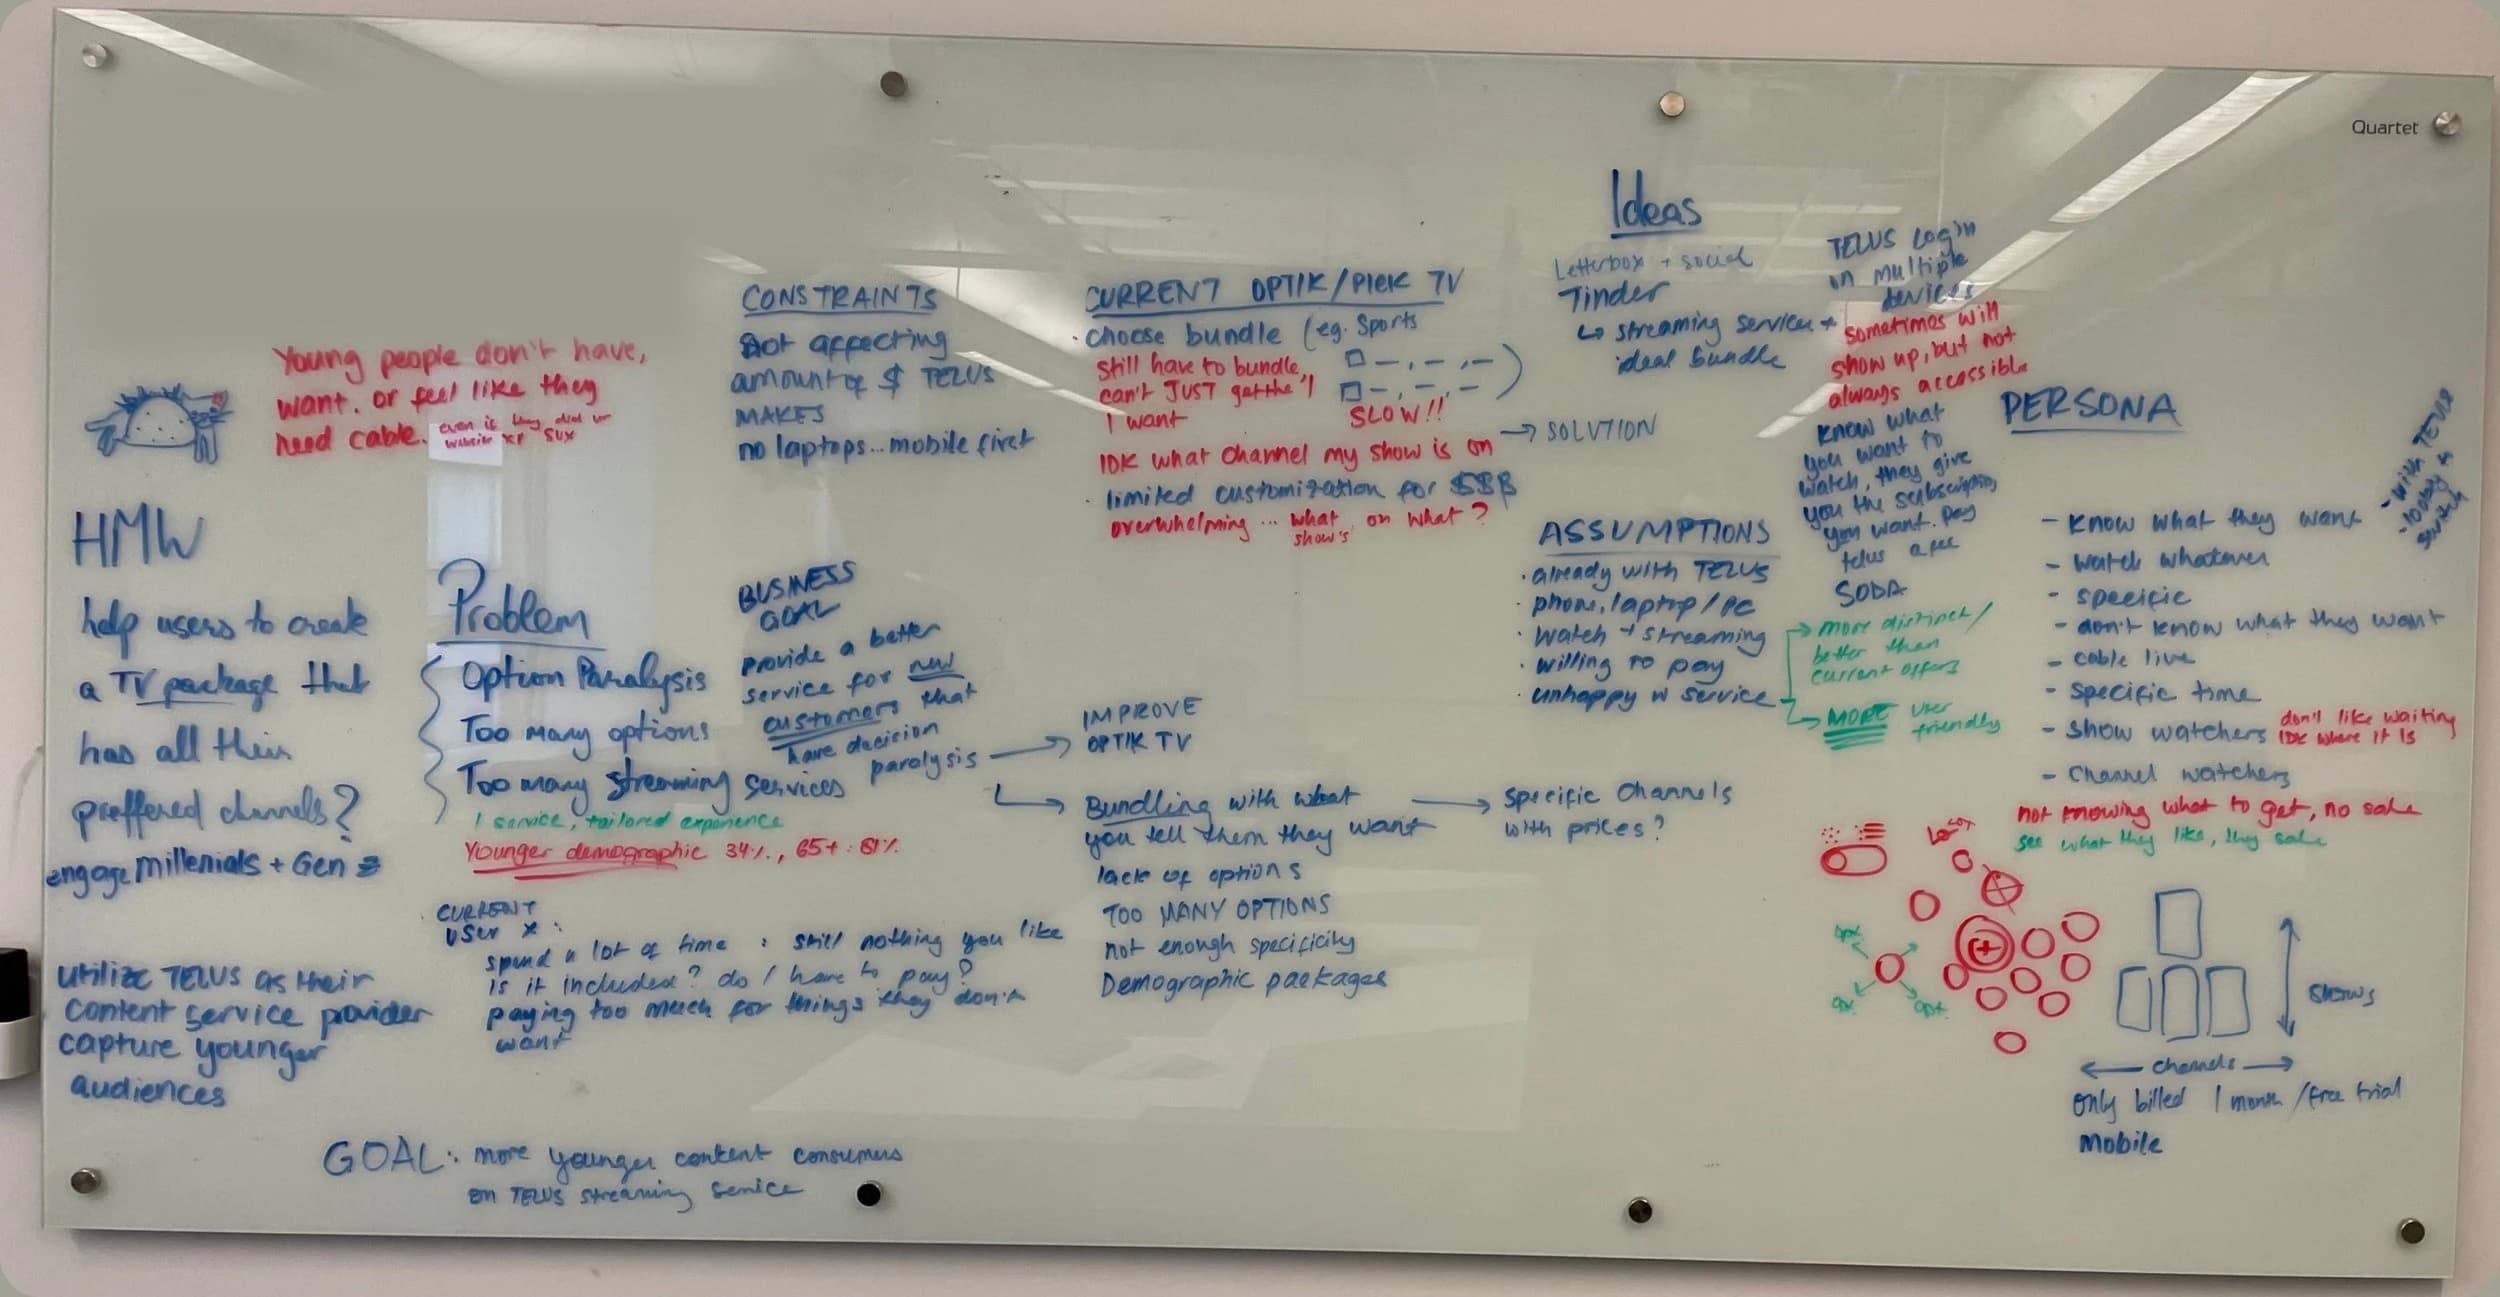 Quartet
Young people don't have,
want. or feel like they
need cable.
even is they did
website xp sux
HMW
help users to create
a TV package that
has all their
preffered channels?
engage millenials + Gen z
utilize TELUS as their
content service provider
capture younger
audiences
Problem
Option Paralysis
Too many options
Too many streaming services
1 service, tailored experience
Younger demographic 34%, 65+: 81%
CURRENT
USER X:
spend a lot of time : still nothing you like
is it included? do I have to pay?
paying too much for things they don't
want
GOAL: more younger content consumers
on TELUS streaming service
CONSTRAINTS
not affecting
amount of $ TELUS
MAKES
no laptops... mobile first
BUSINESS
GOAL
provide a better
service for new
customers that
have decision
paralysis
IMPROVE
OPTIK TV
Bundling with what
you tell them they want
lack of options
TOO MANY OPTIONS
not enough specificity
Demographic packages
specific channels
with prices?
CURRENT OPTIK/PICK TV
· choose bundle (eg. Sports
still have to bundle,
can't JUST get the 1
I want
)
SLOW!!
IDK what channel my show is on
· limited customization for $$$
overwhelming ... what show's on what?
→ SOLUTION
Ideas
Letterbox + social
Tinder
↳ streaming service +
ideal bundle
TELUS Login
in multiple
devices
sometimes will
show up, but not
always accessible
know what
you want to
watch, they give
you the subscription
you want. pay
telus a fee
SODA
ASSUMPTIONS
· already with TELUS
· phone, laptop/PC
· watch + streaming
· willing to pay
· unhappy w service
more distinct/
better than
current offers
MORE user
friendly
PERSONA
- with TELUS
- know what they want
- watch whatever
- specific
- don't know what they want
- cable live
- specific time
- show watchers
don't like waiting
IDK where it is
- channel watchers
not knowing what to get, no sale
see what they like, they sale
shows
channels
only billed 1 month /free trial
mobile